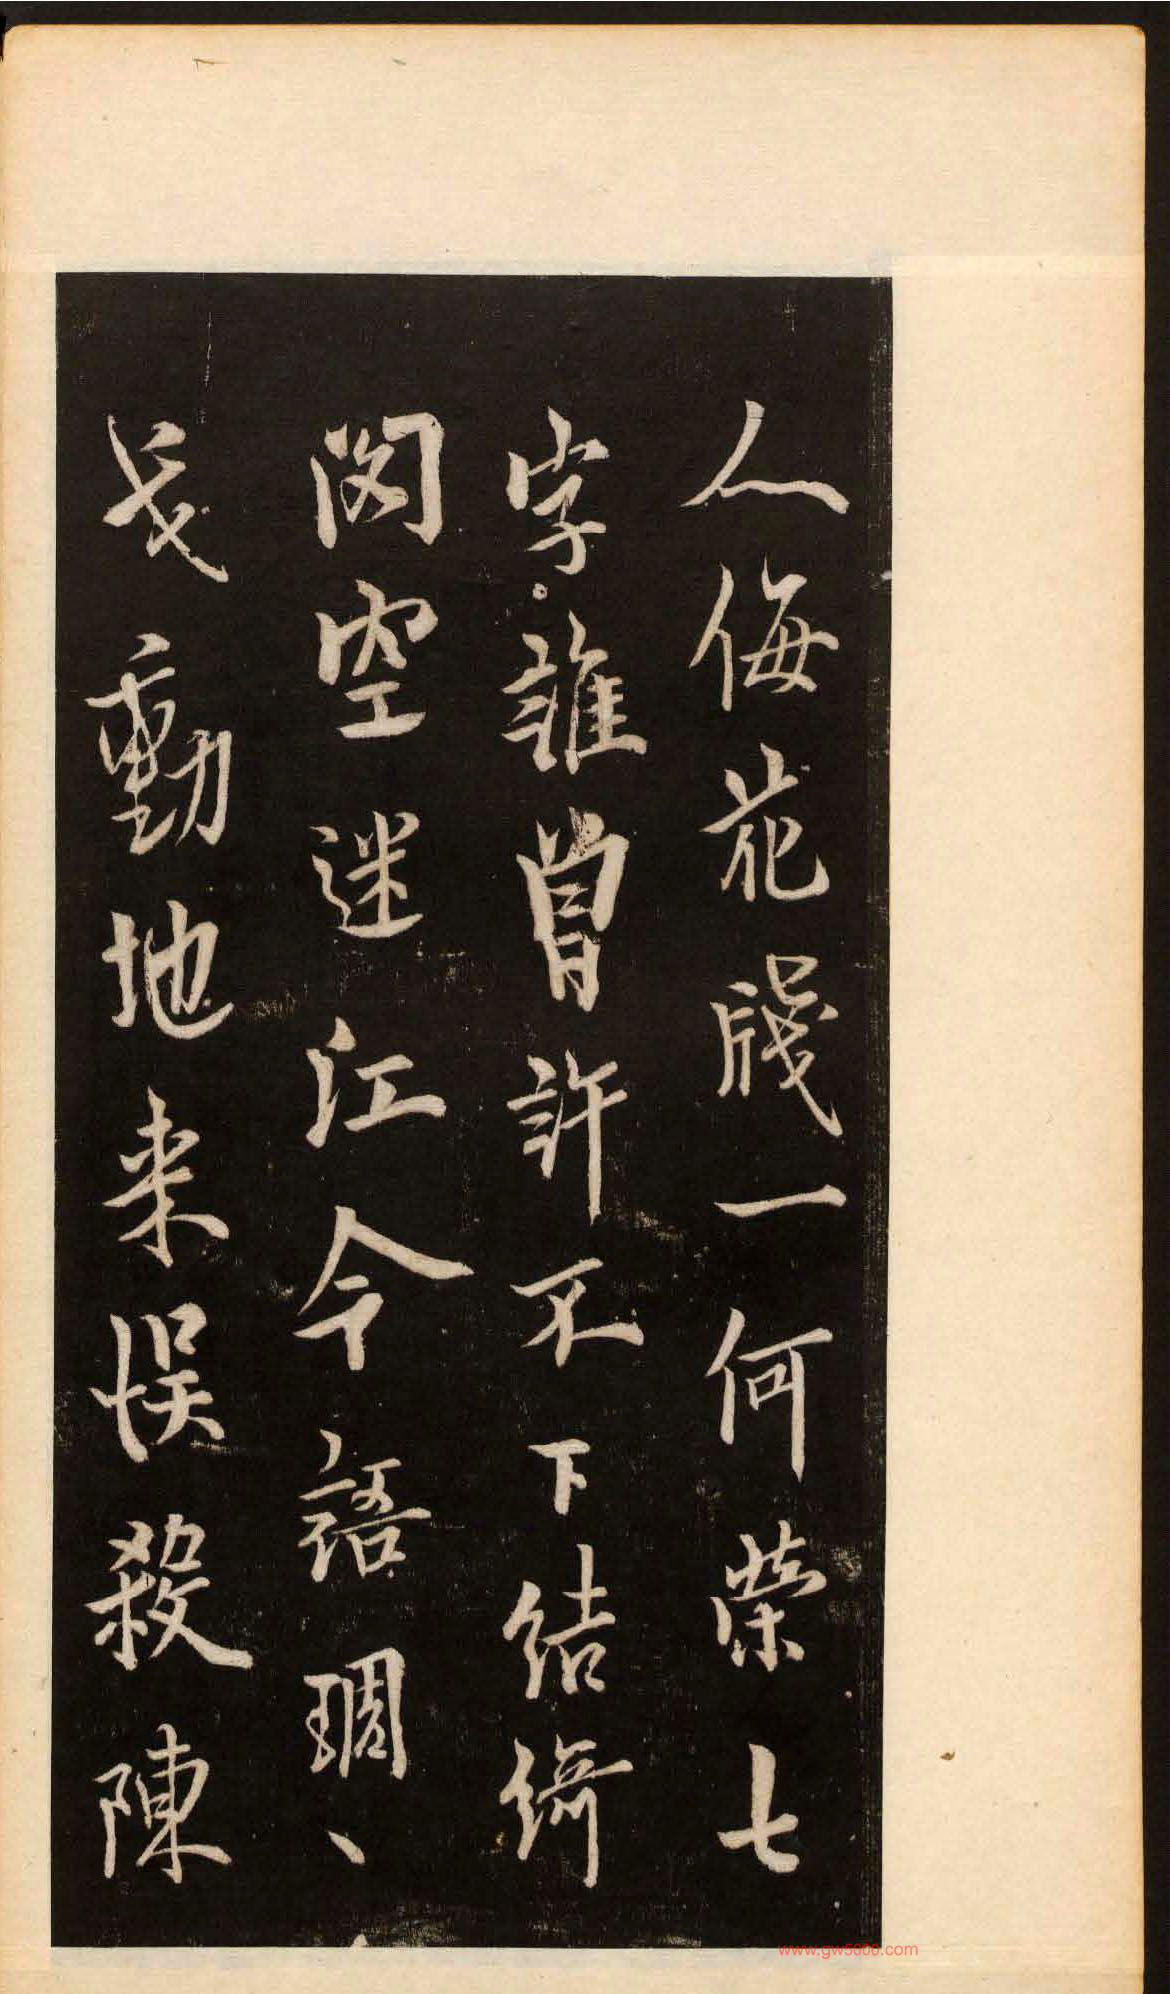 人侮花牋一何榮七
字誰曾許不下結綺
閣空迷江令語琱、
戈動地来悞殺陳
www.gw5000.com